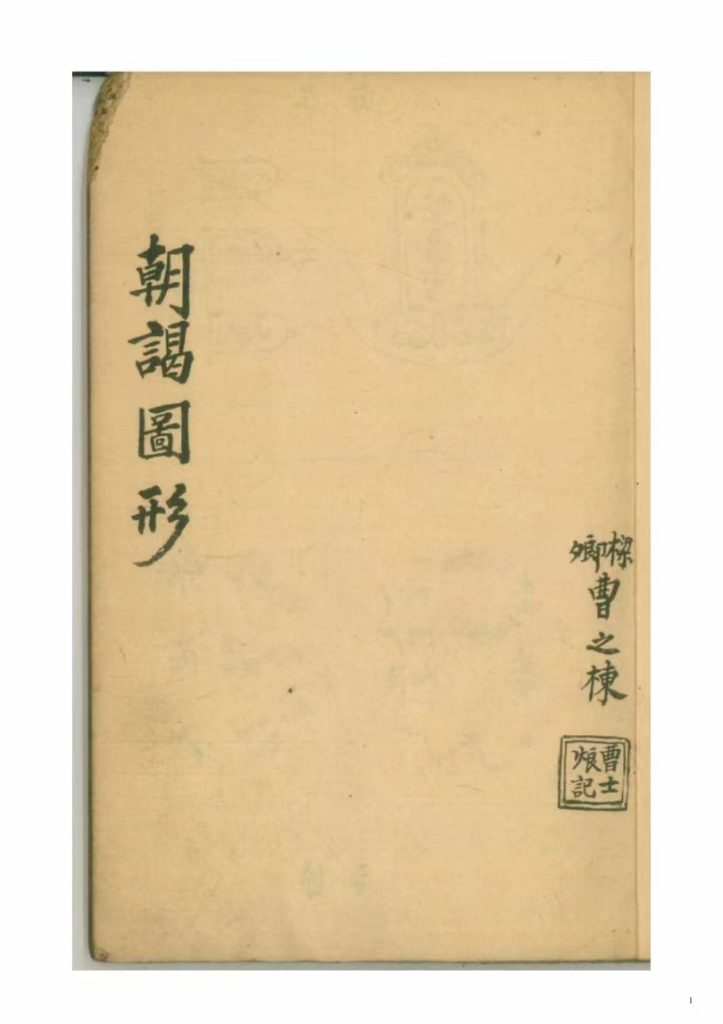 樑
卿
曹之棟
曹士
烺記
朝謁圖形
1